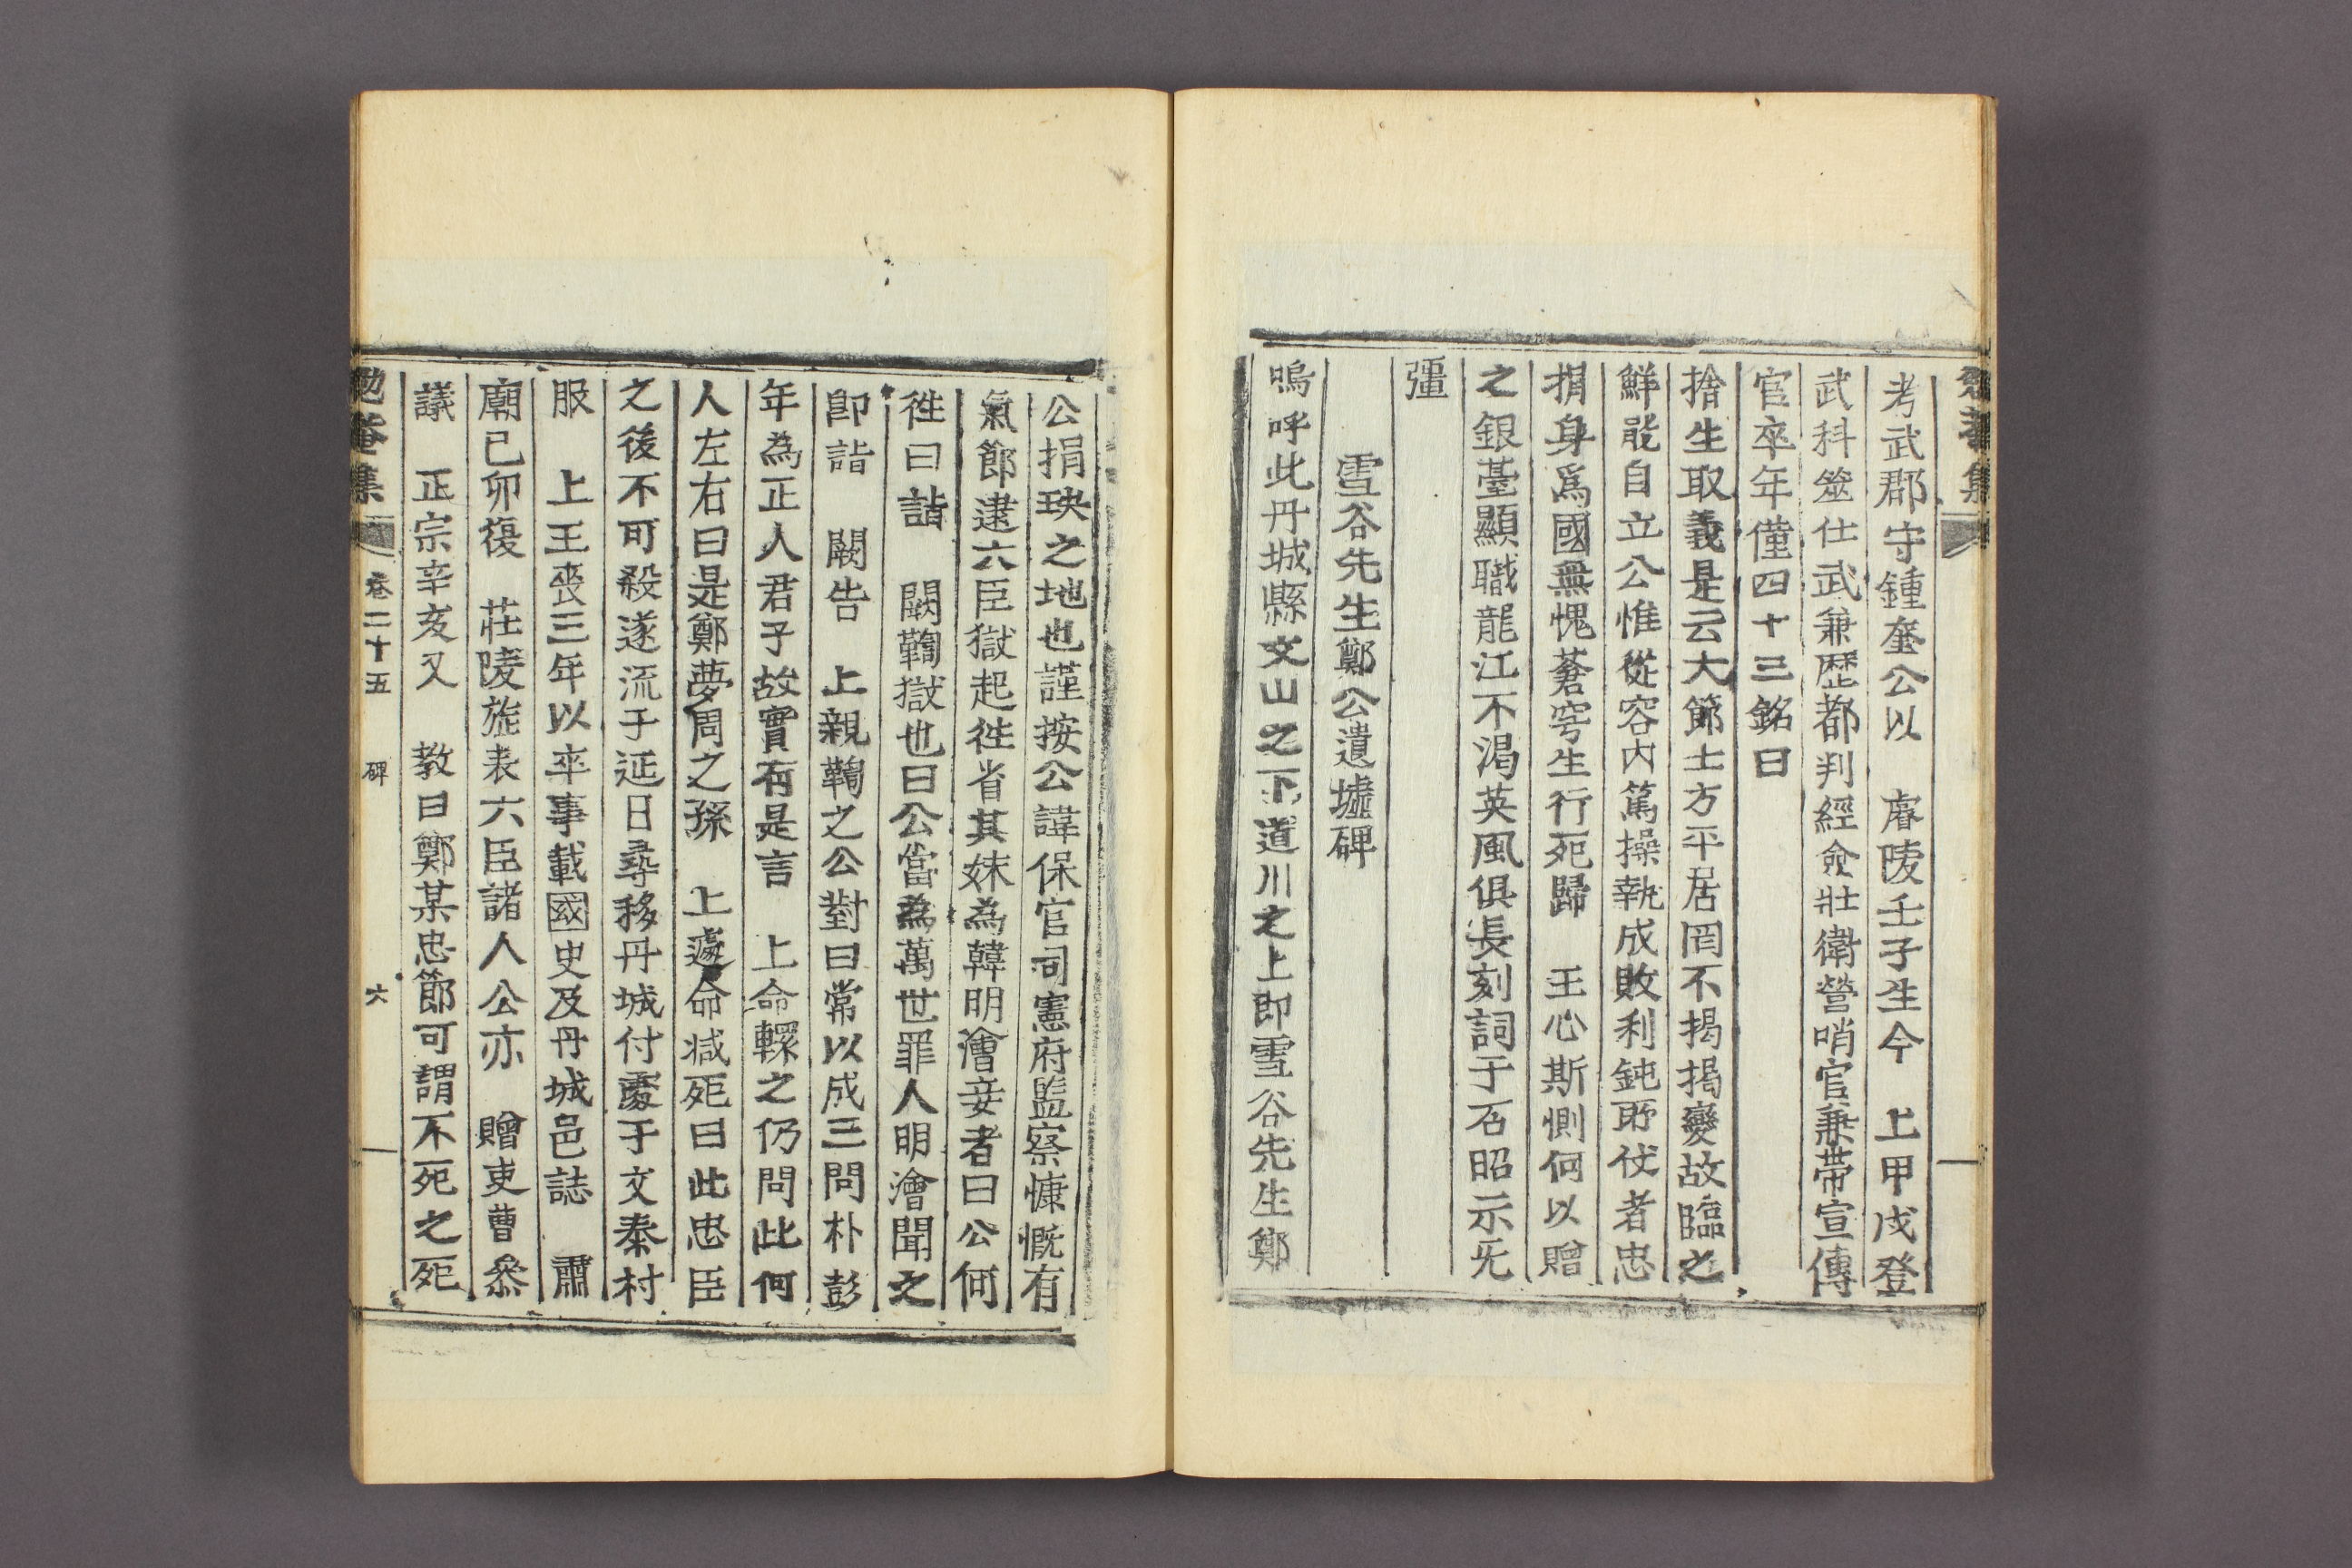 勉菴集
考武郡守鍾奎公以　睿陵壬子生今　上甲戌登
武科筮仕武兼歷都判經僉壯衛營哨官兼帶宣傳
官卒年僅四十三銘曰
捨生取義是云大節士方平居罔不揭揭變故臨之
鮮能自立公惟從容內篤操執成敗利鈍所仗者忠
捐身爲國無愧蒼穹生行死歸　王心斯惻何以贈
之銀臺顯職龍江不渴英風俱長刻詞于石昭示无
彊
雪谷先生鄭公遺墟碑
嗚呼此丹城縣文山之下道川之上即雪谷先生鄭
公捐玦之地也謹按公諱保官司憲府監察慷慨有
氣節逮六臣獄起徃省其妹為韓明澮妾者曰公何
徃曰詣　闕鞫獄也曰公當為萬世罪人明澮聞之
卽詣　闕告　上親鞫之公對曰常以成三問朴彭
年為正人君子故實有是言　上命轘之仍問此何
人左右曰是鄭夢周之孫　上遽命减死曰此忠臣
之後不可殺遂流于延日尋移丹城付處于文秦村
服　上王喪三年以卒事載國史及丹城邑誌　肅
廟己卯復　莊陵旌表六臣諸人公亦　贈吏曹叅
議　正宗辛亥又　敎曰鄭某忠節可謂不死之死
勉菴集　卷二十五　碑　六